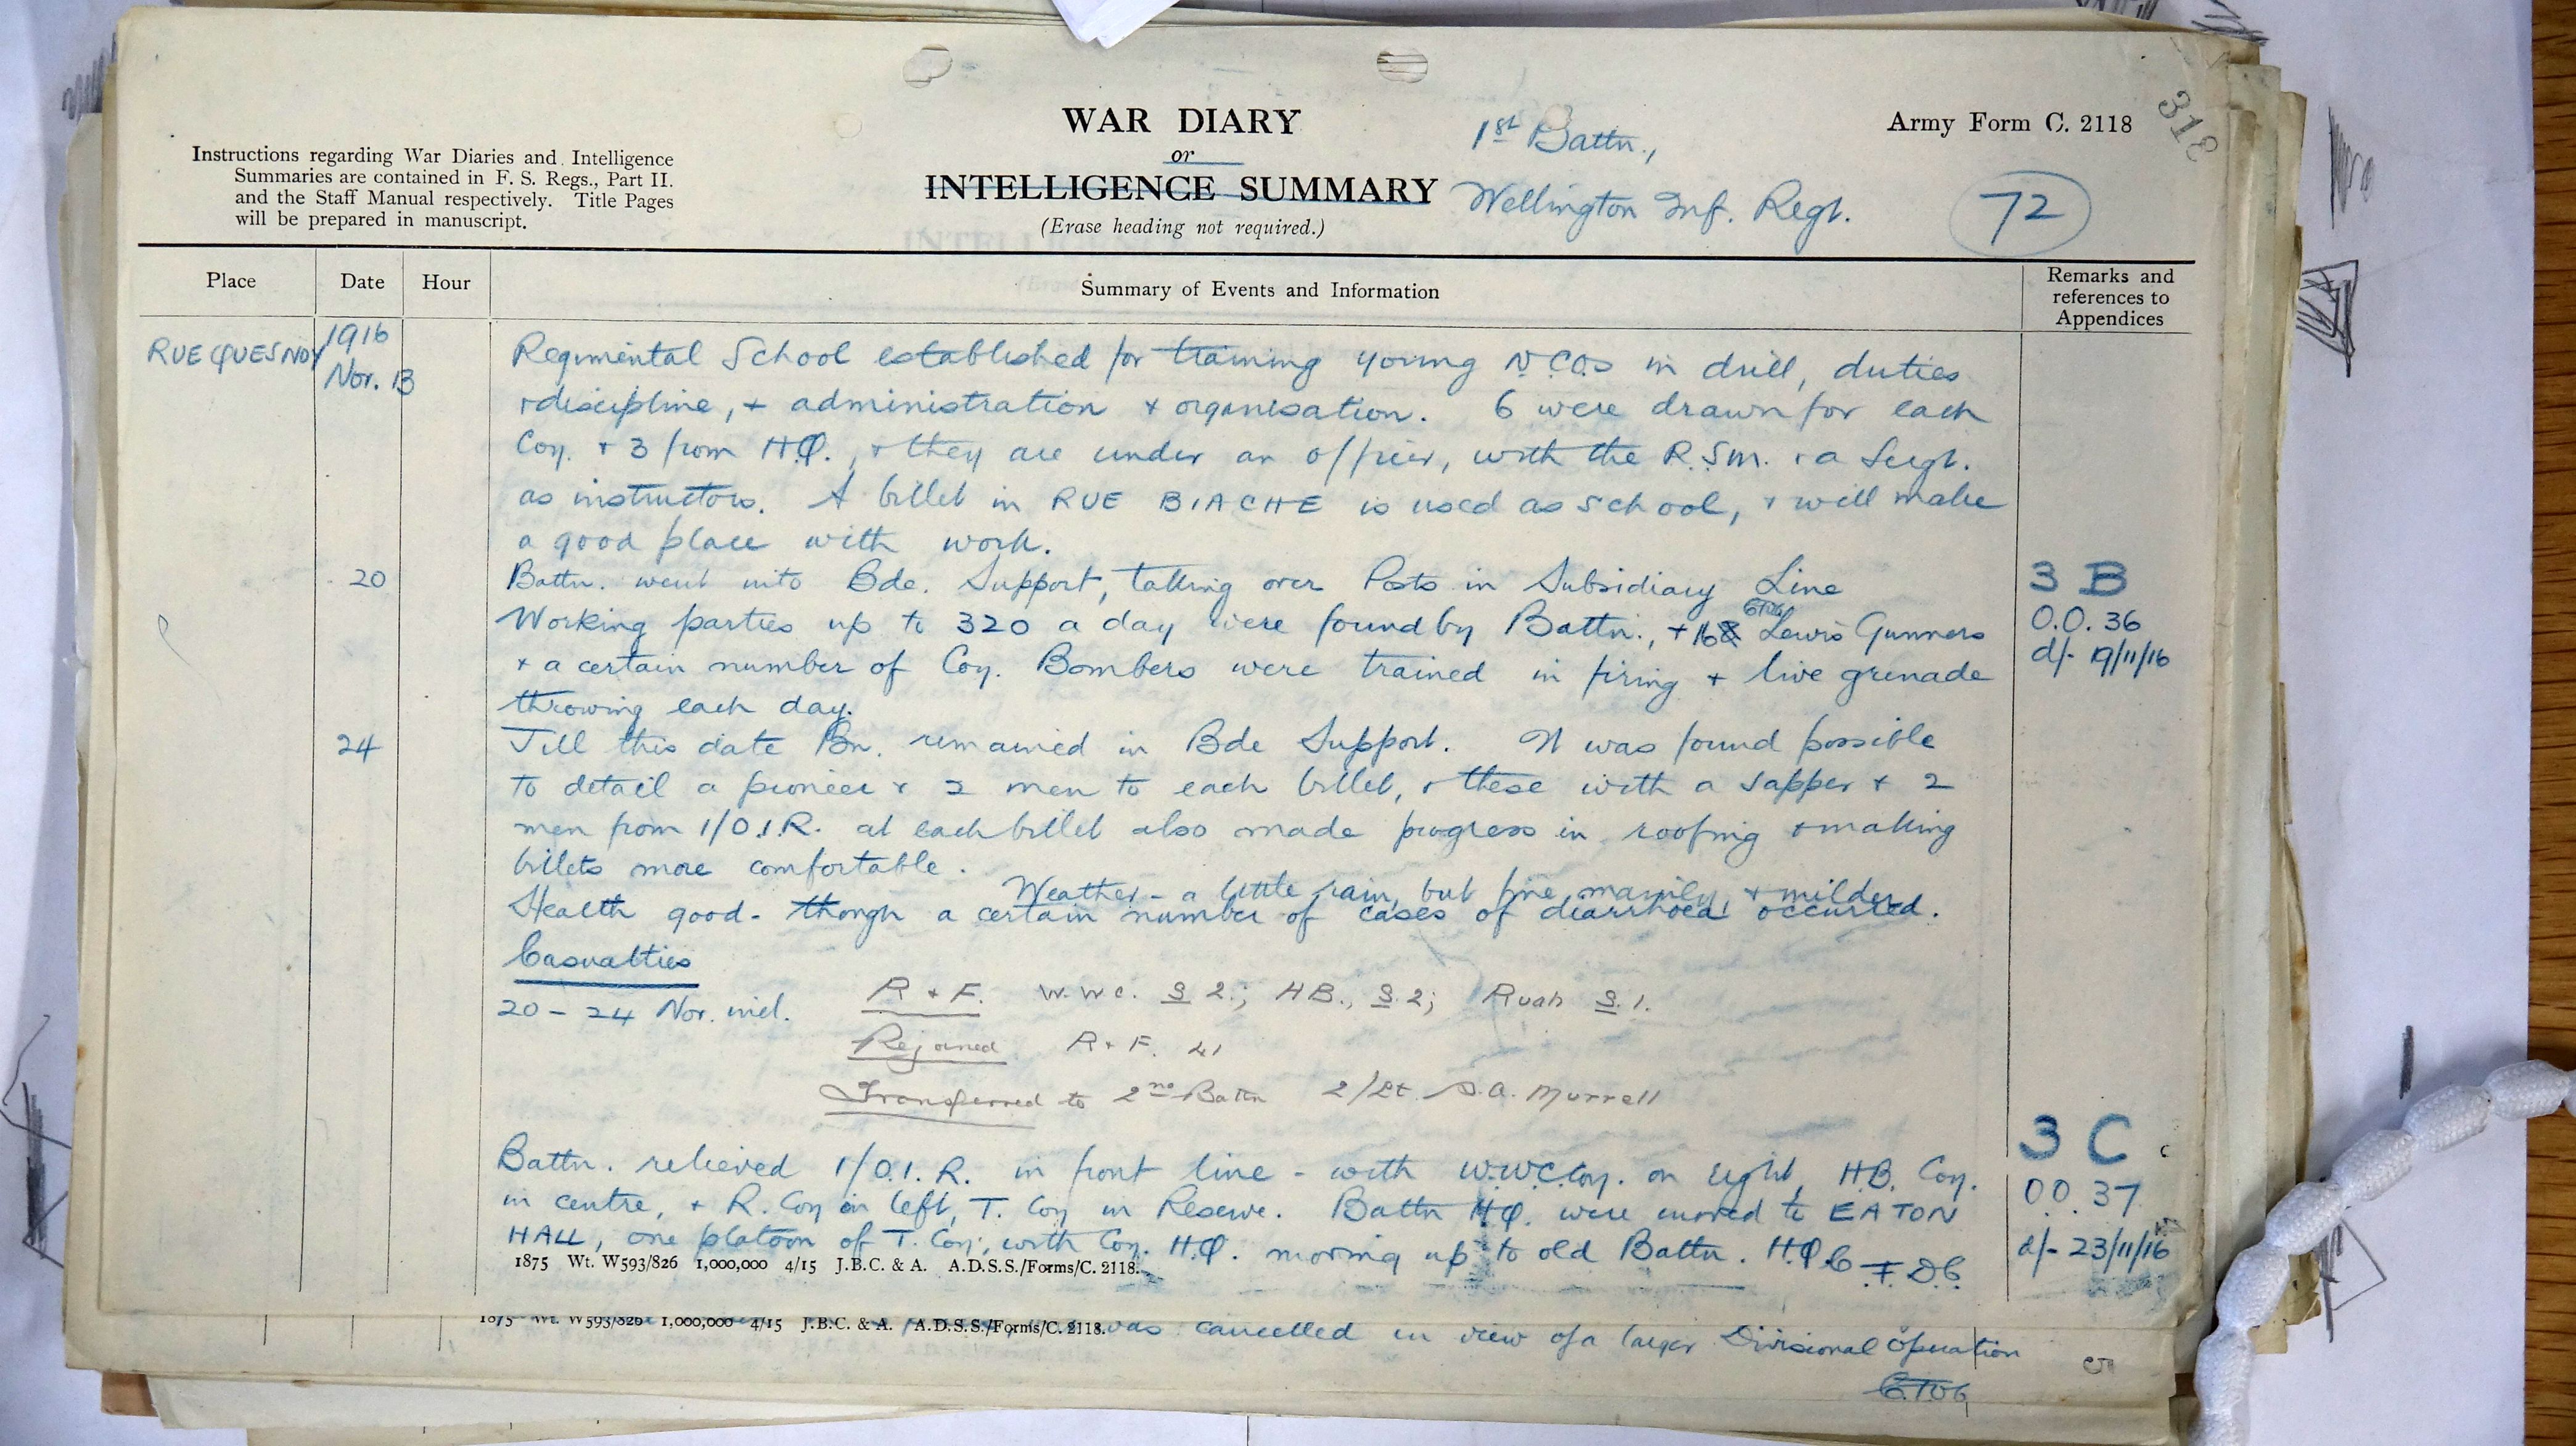 WAR DIARY
or
INTELLIGENCE SUMMARY
(Erase heading not required.)
1st Battn.,
Wellington Inf. Regt.
Army Form C. 2118
318
72
Instructions regarding War Diaries and Intelligence
Summaries are contained in F. S. Regs., Part II.
and the Staff Manual respectively. Title Pages
will be prepared in manuscript.
Place Date Hour Summary of Events and Information Remarks and
references to
Appendices
RUE QUESNOY 1916
Nov. 13
Regimental School established for training young N.C.Os in drill, duties
+ discipline, + administration + organisation. 6 were drawn for each
Coy. + 3 from H.Q., + they are under an officer, with the R.S.M. + a Sergt.
as instructors. A billet in RUE BIACHE is used as school, + will make
a good place with work.
20 Battn. went into Bde. Support, taking over Posts in Subsidiary Line 3 B
Working parties up to 320 a day were found by Battn., + 16 Lewis Gunners O.O. 36
+ a certain number of Coy. Bombers were trained in firing + live grenade d/- 19/11/16
throwing each day.
24 Till this date Bn. remained in Bde Support. It was found possible
to detail a pioneer + 2 men to each billet, + these with a sapper + 2
men from 1/O.I.R. at each billet also made progress in roofing + making
billets more comfortable.
Weather - a little rain, but fine mainly, + milder
Health good - though a certain number of cases of diarrhoea occurred.
Casualties
20 - 24 Nov. incl. R + F. W.W.C. S 2.; H.B., S. 2; Ruah S. 1.
Rejoined R + F. 41
Transferred to 2nd Battn 2/Lt. S.A. Murrell
Battn. relieved 1/O.I.R. in front line - with W.W.C. Coy. on right, H.B. Coy. 3 C
in centre, + R. Coy in left, T. Coy in Reserve. Battn H.Q. were moved to EATON O.O. 37
HALL, one platoon of T. Coy., with Coy. H.Q. moving up to old Battn. H.Q. d/- 23/11/16
1875 Wt. W593/826 1,000,000 4/15 J.B.C. & A. A.D.S.S./Forms/C. 2118.
1875 Wt. W593/826 1,000,000 4/15 J.B.C. & A. A.D.S.S./Forms/C. 2118.
was cancelled in view of a larger Divisional Operation